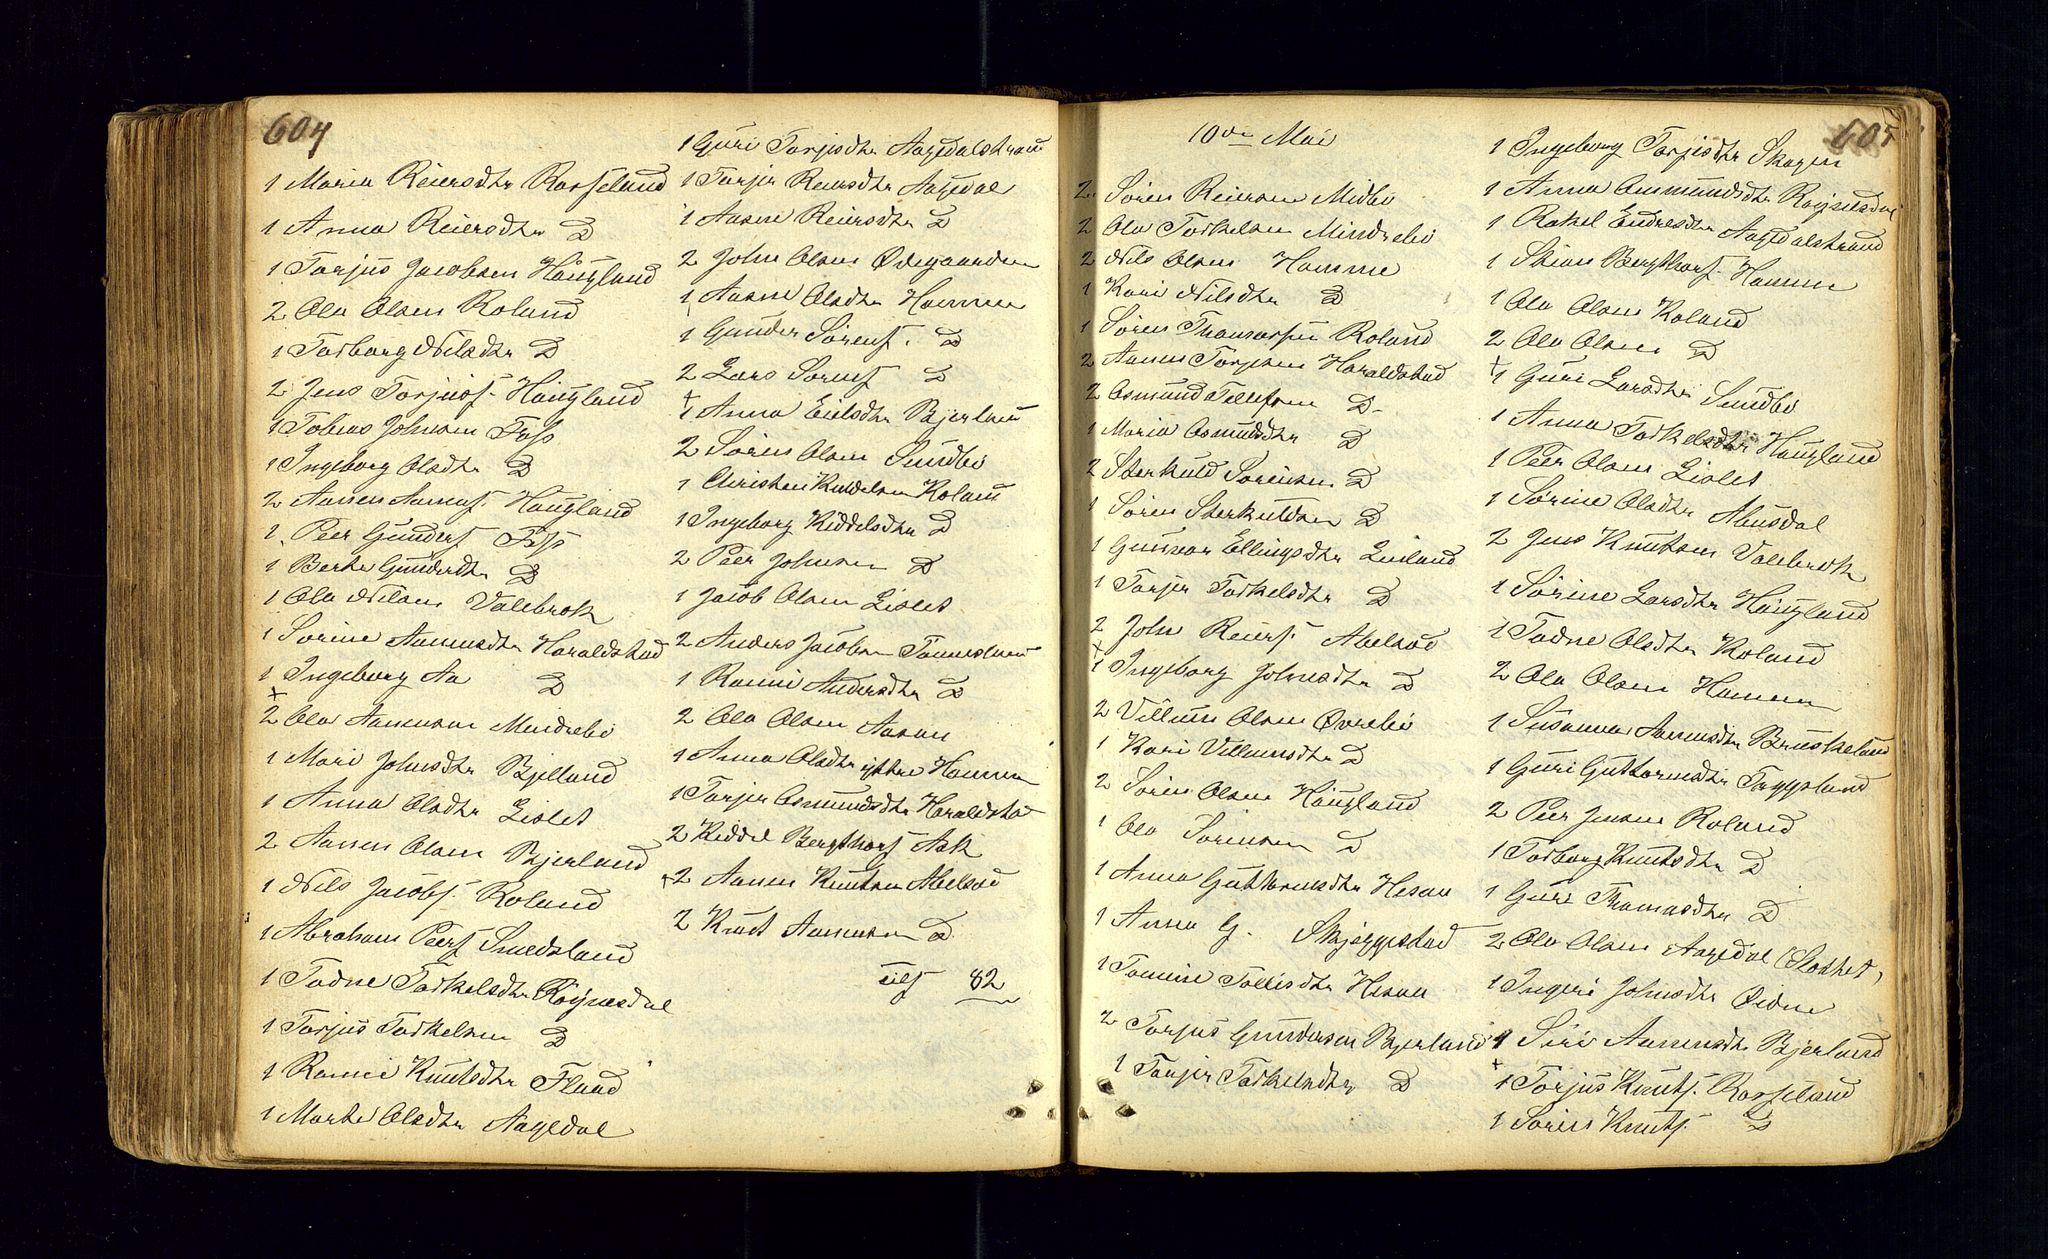 604
1 Maria Reiersdtr Rosseland
1 Anna Reiersdtr D
1 Torjus Jacobsen Haugland
2 Ola Olsen Roland
1 Torborg Nilsdtr D
2 Jens Torjusf. Haugland
1 Tobias Johnsen Foss
1 Ingeborg Olsdtr D
2 Aanen Aanensf Haugland
1 Peer Gundersf Foss
1 Berte Gundersdtr D
1 Ola Nilsen Valebrok
1 Sørine Aanensdtr Haraldstad
1 Ingeborg Aa D
+
2 Ola Aanensen Mindrebø
1 Mari Johnsdtr Bjelland
1 Anna Olsdtr Liolet
2 Aanen Olsen Bjerland
1 Nils Jacobsf. Roland
1 Abraham Peersf Smedsland
1 Todne Torkelsdtr Røynesdal
1 Torjus Torkelsen D
1 Ranni Knutsdtr Flaad
1 Marte Olsdtr Aagedal
1 Guri Torjusdtr Aagedalstrand
1 Torjer Reiersdtr Aagedal
1 Aasne Reiersdtr D
2 John Olsen Ødegaarden
1 Aasne Olsdtr Homme
1 Gunder Sørensf. D
2 Lars Sørensf D
+
1 Anna Eilsdtr Bjerland
2 Søren Olsen Sundbø
1 Christen Kiddelsen Roland
1 Ingeborg Kiddelsdtr D
2 Peer Johnsen D
1 Jacob Olsen Liolet
2 Anders Jacobsen
1 Ranni Andersdtr D
2 Ola Olsen Aasen
1 Anna Olsdtr yttre Homme
1 Torjer Osmundsdtr Haraldstad
2 Kiddel Bergthorsf Ask
+2 Aanen Knutsen Abelsød
2 Knut Aanensen D
Tils 82
10de Mai
605
2 Søren Reiersen Midbø
2 Ola Torkelsen Mindrebø
2 Nils Olsen Homme
1 Kari Nilsdtr D
1 Søren Thomassen Roland
2 Aanen Torjesen Haraldstad
2 Osmund Tellefsen D
1 Maria Osmundsdtr D
2 Sterkuld Sørensen D
1 Søren Sterkuldsen D
1 Gunvor Ellingsdtr Lieland
1 Torjer Torkelsdtr D
2 John Reiersf. Abelsød
+
1 Ingeborg Johnsdtr D
2 Villum Olsen Øvrebø
1 Kari Villumsdtr D
2 Søren Olsen Haugland
1 Ola Sørensen D
1 Anna Guttormsdtr Hesaa
1 Anna G. Skjeggestad
1 Tomine Tollisdtr Hesaa
2 Torjus Gundersen Bjerland
1 Torjer Torkelsdtr D
1 Ingeborg Torjusdtr Skogen
1 Anna Osmundsdtr Røynesdal
1 Rakel Endresdtr Aagedalstrand
1 Stian Bergthorsf. Homme
1 Ola Olsen Roland
2 Ola Olsen D
+
1 Guri Larsdtr Sundbø
1 Anna Torkelsdtr Haugland
1 Peer Olsen Liolet
1 Sørine Olsdtr Abusdal
2 Jens Knutsen Valebrok
1 Sørine Larsdtr Haugland
1 Todne Olsdtr Roland
2 Ola Olsen Homme
1 Susanna Aanensdtr Bruskeland
1 Guri Guttormsdtr Taggsland
2 Peer Jensen Roland
1 Torborg Knutsdtr D
1 Guri Thomasdtr D
2 Ola Olsen Aagedal (Slothei)
1 Ingeri Johnsdtr Øidne
1 Siri Aanensdtr Bjerland
+
1 Torjus Knutsf. Rosseland
1 Søren Knutsf. D